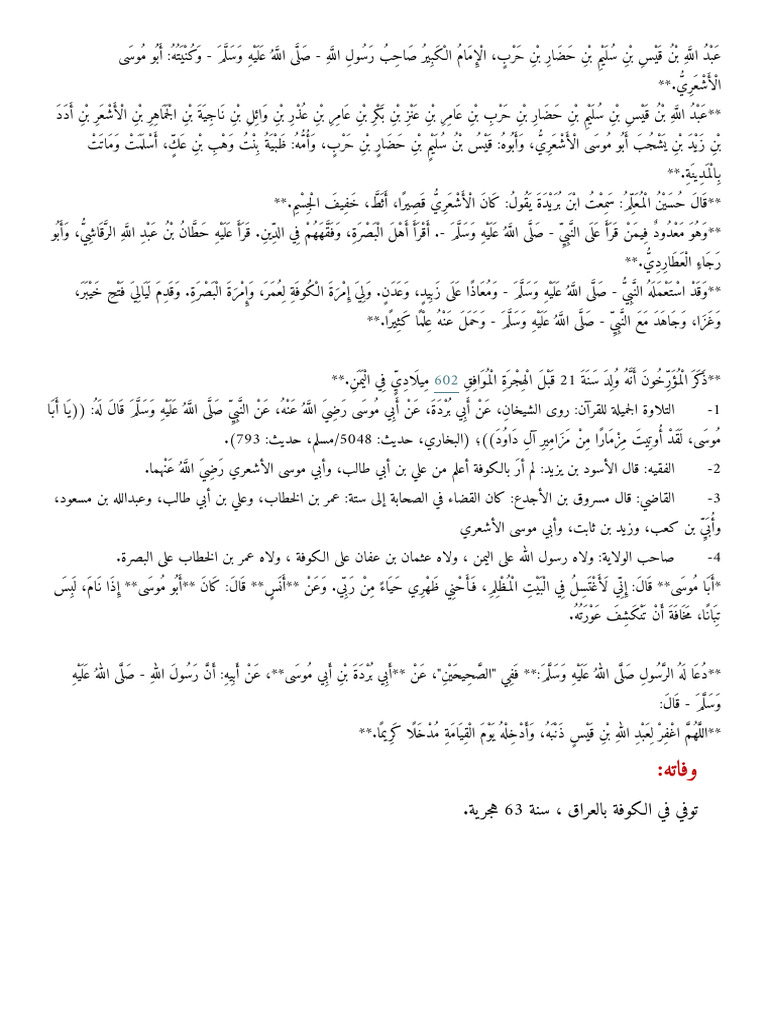 عَبْدُ اللَّهِ بْنُ قَيْسِ بْنِ سُلَيْمِ بْنِ حَضَارِ بْنِ حَرْبٍ، الْإِمَامُ الْكَبِيرُ صَاحِبُ رَسُولِ اللَّهِ - صَلَّى اللَّهُ عَلَيْهِ وَسَلَّمَ - وَكُنْيَتُهُ: أَبُو مُوسَى
الْأَشْعَرِيُّ.**
**عَبْدُ اللَّهِ بْنُ قَيْسِ بْنِ سُلَيْمِ بْنِ حَضَارِ بْنِ حَرْبِ بْنِ عَامِرِ بْنِ عَنْزِ بْنِ بَكْرِ بْنِ عَامِرِ بْنِ عُذْرِ بْنِ وَائِلِ بْنِ نَاجِيَةَ بْنِ الْجَمَاهِرِ بْنِ الْأَشْعَرِ بْنِ أَدَدَ
بْنِ زَيْدَ بْنِ يَشْجُبَ أَبُو مُوسَى الْأَشْعَرِيُّ، وَأَبُوهُ: قَيْسُ بْنُ سُلَيْمِ بْنِ حَضَارِ بْنِ حَرْبٍ، وَأُمُّهُ: ظَبْيَةُ بِنْتُ وَهْبِ بْنِ عَكٍّ، أَسْلَمَتْ وَمَاتَتْ
بِالْمَدِينَةِ.**
**قَالَ حُسَيْنُ الْمُعَلِّمُ: سَمِعْتُ ابْنَ بُرَيْدَةَ يَقُولُ: كَانَ الْأَشْعَرِيُّ قَصِيرًا، أَثَطَّ، خَفِيفَ الْجِسْمِ.**
**وَهُوَ مَعْدُودٌ فِيمَنْ قَرَأَ عَلَى النَّبِيِّ - صَلَّى اللَّهُ عَلَيْهِ وَسَلَّمَ -. أَقْرَأَ أَهْلَ الْبَصْرَةِ، وَفَقَّهَهُمْ فِي الدِّينِ. قَرَأَ عَلَيْهِ حَطَّانُ بْنُ عَبْدِ اللَّهِ الرَّقَاشِيُّ، وَأَبُو
رَجَاءٍ الْعَطَارِدِيُّ.**
**وَقَدْ اسْتَعْمَلَهُ النَّبِيُّ - صَلَّى اللَّهُ عَلَيْهِ وَسَلَّمَ - وَمُعَاذًا عَلَى زَبِيدٍ، وَعَدَنٍ. وَلِيَ إِمْرَةَ الْكُوفَةِ لِعُمَرَ، وَإِمْرَةَ الْبَصْرَةِ. وَقَدِمَ لَيَالِيَ فَتْحِ خَيْبَرَ،
وَغَزَا، وَجَاهَدَ مَعَ النَّبِيِّ - صَلَّى اللَّهُ عَلَيْهِ وَسَلَّمَ - وَحَمَلَ عَنْهُ عِلْمًا كَثِيرًا.**
**ذَكَرَ الْمُؤَرِّخُونَ أَنَّهُ وُلِدَ سَنَةَ 21 قَبْلَ الْهِجْرَةِ الْمُوَافِقِ 602 مِيلَادِيٍّ فِي الْيَمَنِ.**
1- التلاوة الجميلة للقرآن: روى الشيخان، عَنْ أَبِي بُرْدَةَ، عَنْ أَبِي مُوسَى رَضِيَ اللَّهُ عَنْهُ، عَنْ النَّبِيِّ صَلَّى اللَّهُ عَلَيْهِ وَسَلَّمَ قَالَ لَهُ: ((يَا أَبَا
مُوسَى، لَقَدْ أُوتِيتَ مِزْمَارًا مِنْ مَزَامِيرِ آلِ دَاوُدَ))؛ (البخاري، حديث: 5048/مسلم، حديث: 793).
2- الفقيه: قال الأسود بن يزيد: لم أرَ بالكوفة أعلم من علي بن أبي طالب، وأبي موسى الأشعري رَضِيَ اللَّهُ عَنْهما.
3- القاضي: قال مسروق بن الأجدع: كان القضاء في الصحابة إلى ستة: عمر بن الخطاب، وعلي بن أبي طالب، وعبدالله بن مسعود،
وأُبَيِّ بن كعب، وزيد بن ثابت، وأبي موسى الأشعري
4- صاحب الولاية: ولاه رسول الله على اليمن ، ولاه عثمان بن عفان على الكوفة ، ولاه عمر بن الخطاب على البصرة.
*أَبَا مُوسَى** قَالَ: إِنِّي لَأَغْتَسِلُ فِي الْبَيْتِ الْمُظْلِمِ، فَأَحْنِي ظَهْرِي حَيَاءً مِنْ رَبِّي. وَعَنْ **أَنَسٍ** قَالَ: كَانَ **أَبُو مُوسَى** إِذَا نَامَ، لَبِسَ
تِبَانًا، مَخَافَةَ أَنْ تَنْكَشِفَ عَوْرَتُهُ.
**دُعَا لَهُ الرَّسُولِ صَلَّى اللهُ عَلَيْهِ وَسَلَّمَ:** فَفِي "الصَّحِيحَيْنِ"، عَنْ **أَبِي بُرْدَةَ بْنِ أَبِي مُوسَى**، عَنْ أَبِيهِ: أَنَّ رَسُولَ اللهِ - صَلَّى اللهُ عَلَيْهِ
وَسَلَّمَ - قَالَ:
**اللَّهُمَّ اغْفِرْ لِعَبْدِ اللهِ بْنِ قَيْسٍ ذَنْبَهُ، وَأَدْخِلْهُ يَوْمَ الْقِيَامَةِ مُدْخَلًا كَرِيمًا.**
وفاته:
توفي في الكوفة بالعراق ، سنة 63 هجرية.